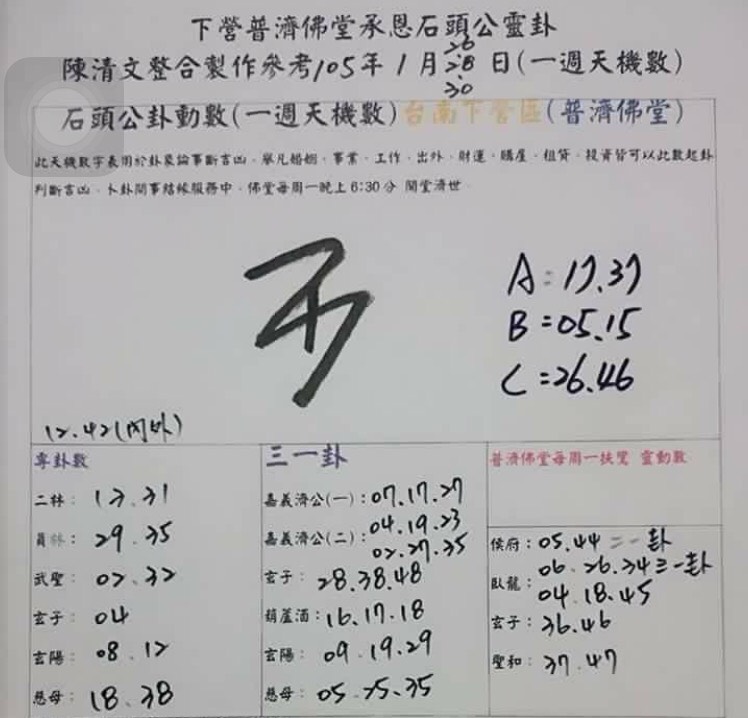 下營普濟佛堂承恩石頭公靈卦
陳清文整合製作參考105年1月26.28.30日(一週天機數)
石頭公卦動數(一週天機數)台南下營區(普濟佛堂)
此天機數字表用於卦象論事斷吉凶、舉凡婚姻、事業、工作、出外、財運、購屋、租賃、投資皆可以此數起卦
判斷吉凶、卜卦問事結緣服務中、佛堂每周一晚上6:30分 開堂濟世、
A:17.37
B=05.15
C=26.46
12.42(內外)
專卦數
二林:
員林: 29.35
武聖: 02.32
玄子: 04
玄陽: 08.12
慈母: 18.38
三一卦
嘉義濟公(一):07.17.27
嘉義濟公(二):04.19.23
02.27.35
玄子: 28.38.48
葫蘆酒:16.17.18
玄陽: 09.19.29
慈母: 05.25.35
普濟佛堂每周一扶鸞 靈動數
侯府:05.44 二一卦
06.26.34三一卦
臥龍:04.18.45
玄子:36.46
聖和:37.47